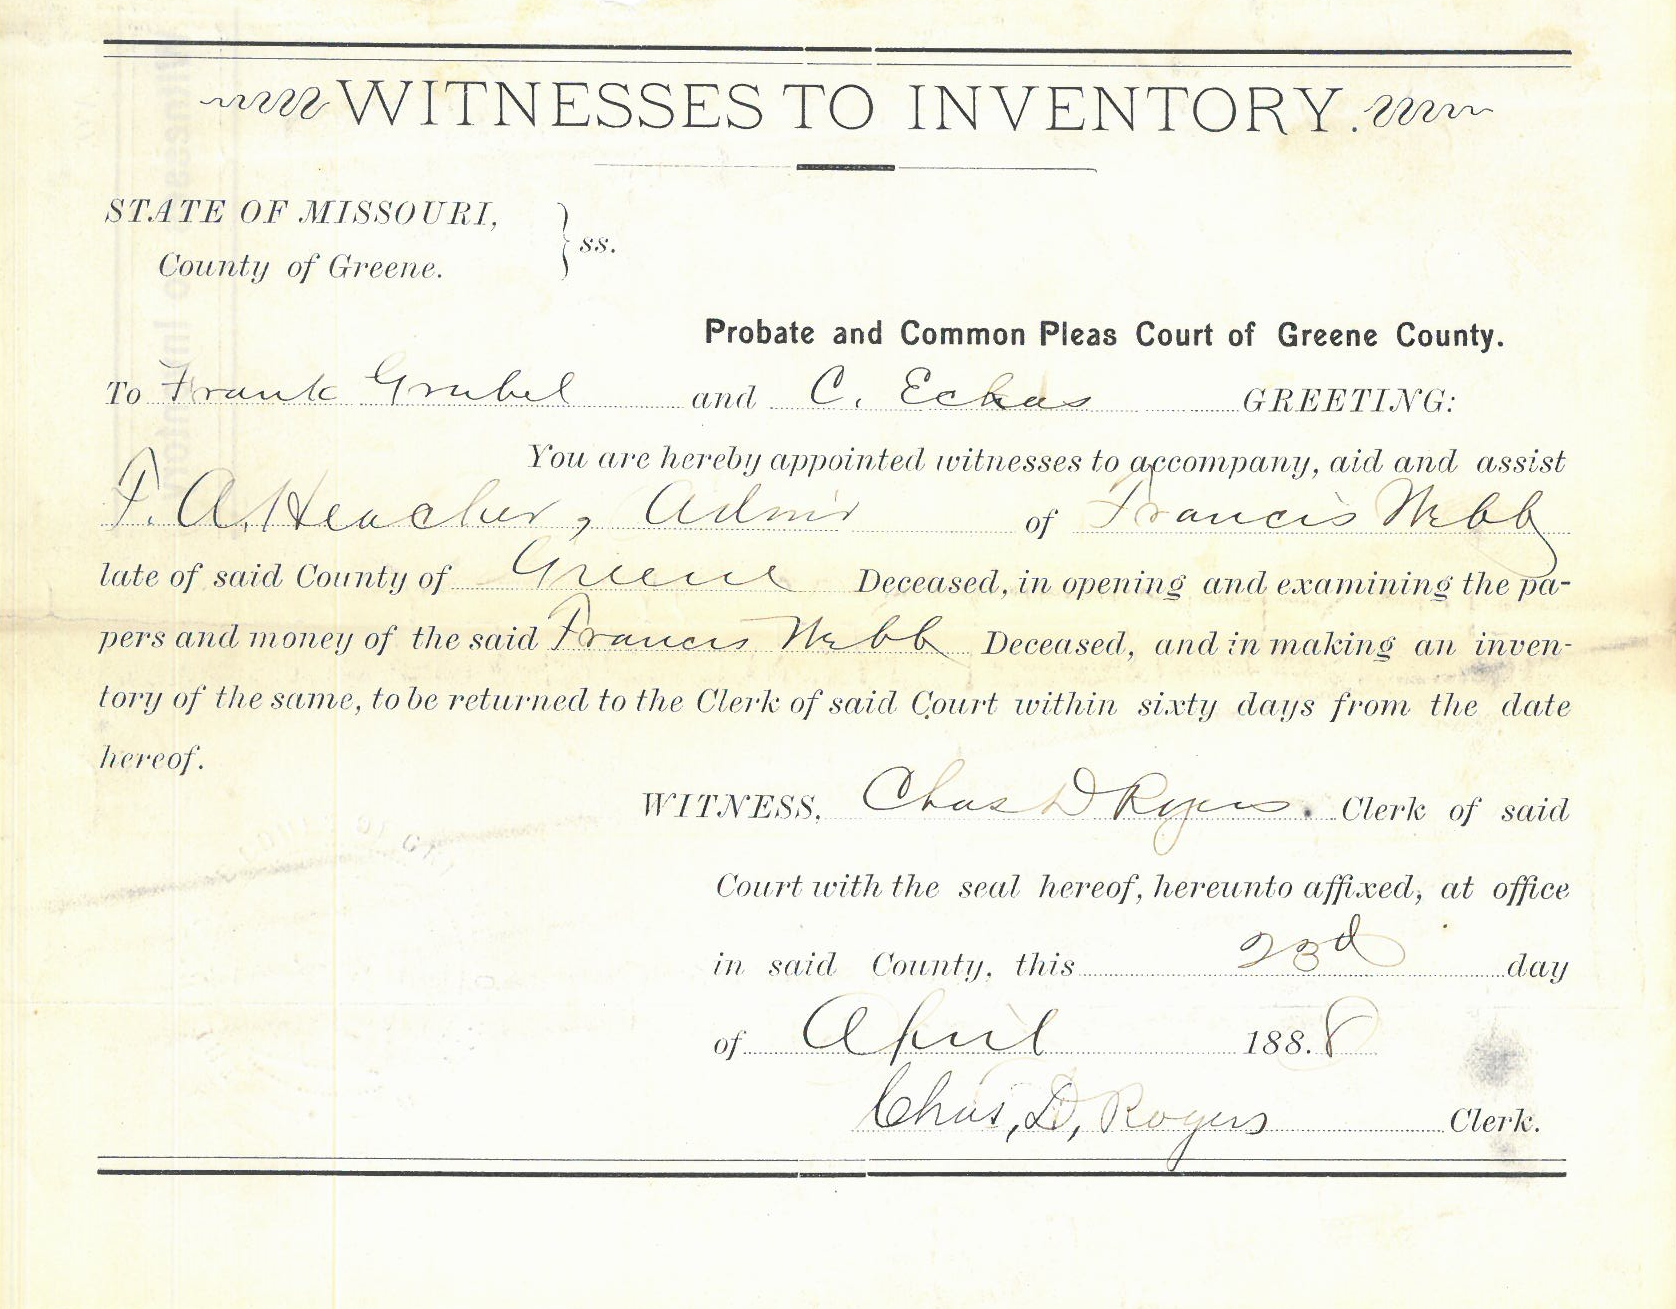 WITNESSES TO INVENTORY.
STATE OF MISSOURI,
County of Greene. } ss.
Probate and Common Pleas Court of Greene County.
To Frank Grubel and C. Eckas GREETING:
You are hereby appointed witnesses to accompany, aid and assist
T. A. Heacker, Admir of Francis Webb
late of said County of Greene Deceased, in opening and examining the pa-
pers and money of the said Francis Webb Deceased, and in making an inven-
tory of the same, to be returned to the Clerk of said Court within sixty days from the date
hereof.
WITNESS, Chas D Rogers. Clerk of said
Court with the seal hereof, hereunto affixed, at office
in said County, this 23d day
of April 188.8
Chas, D, Rogers Clerk.